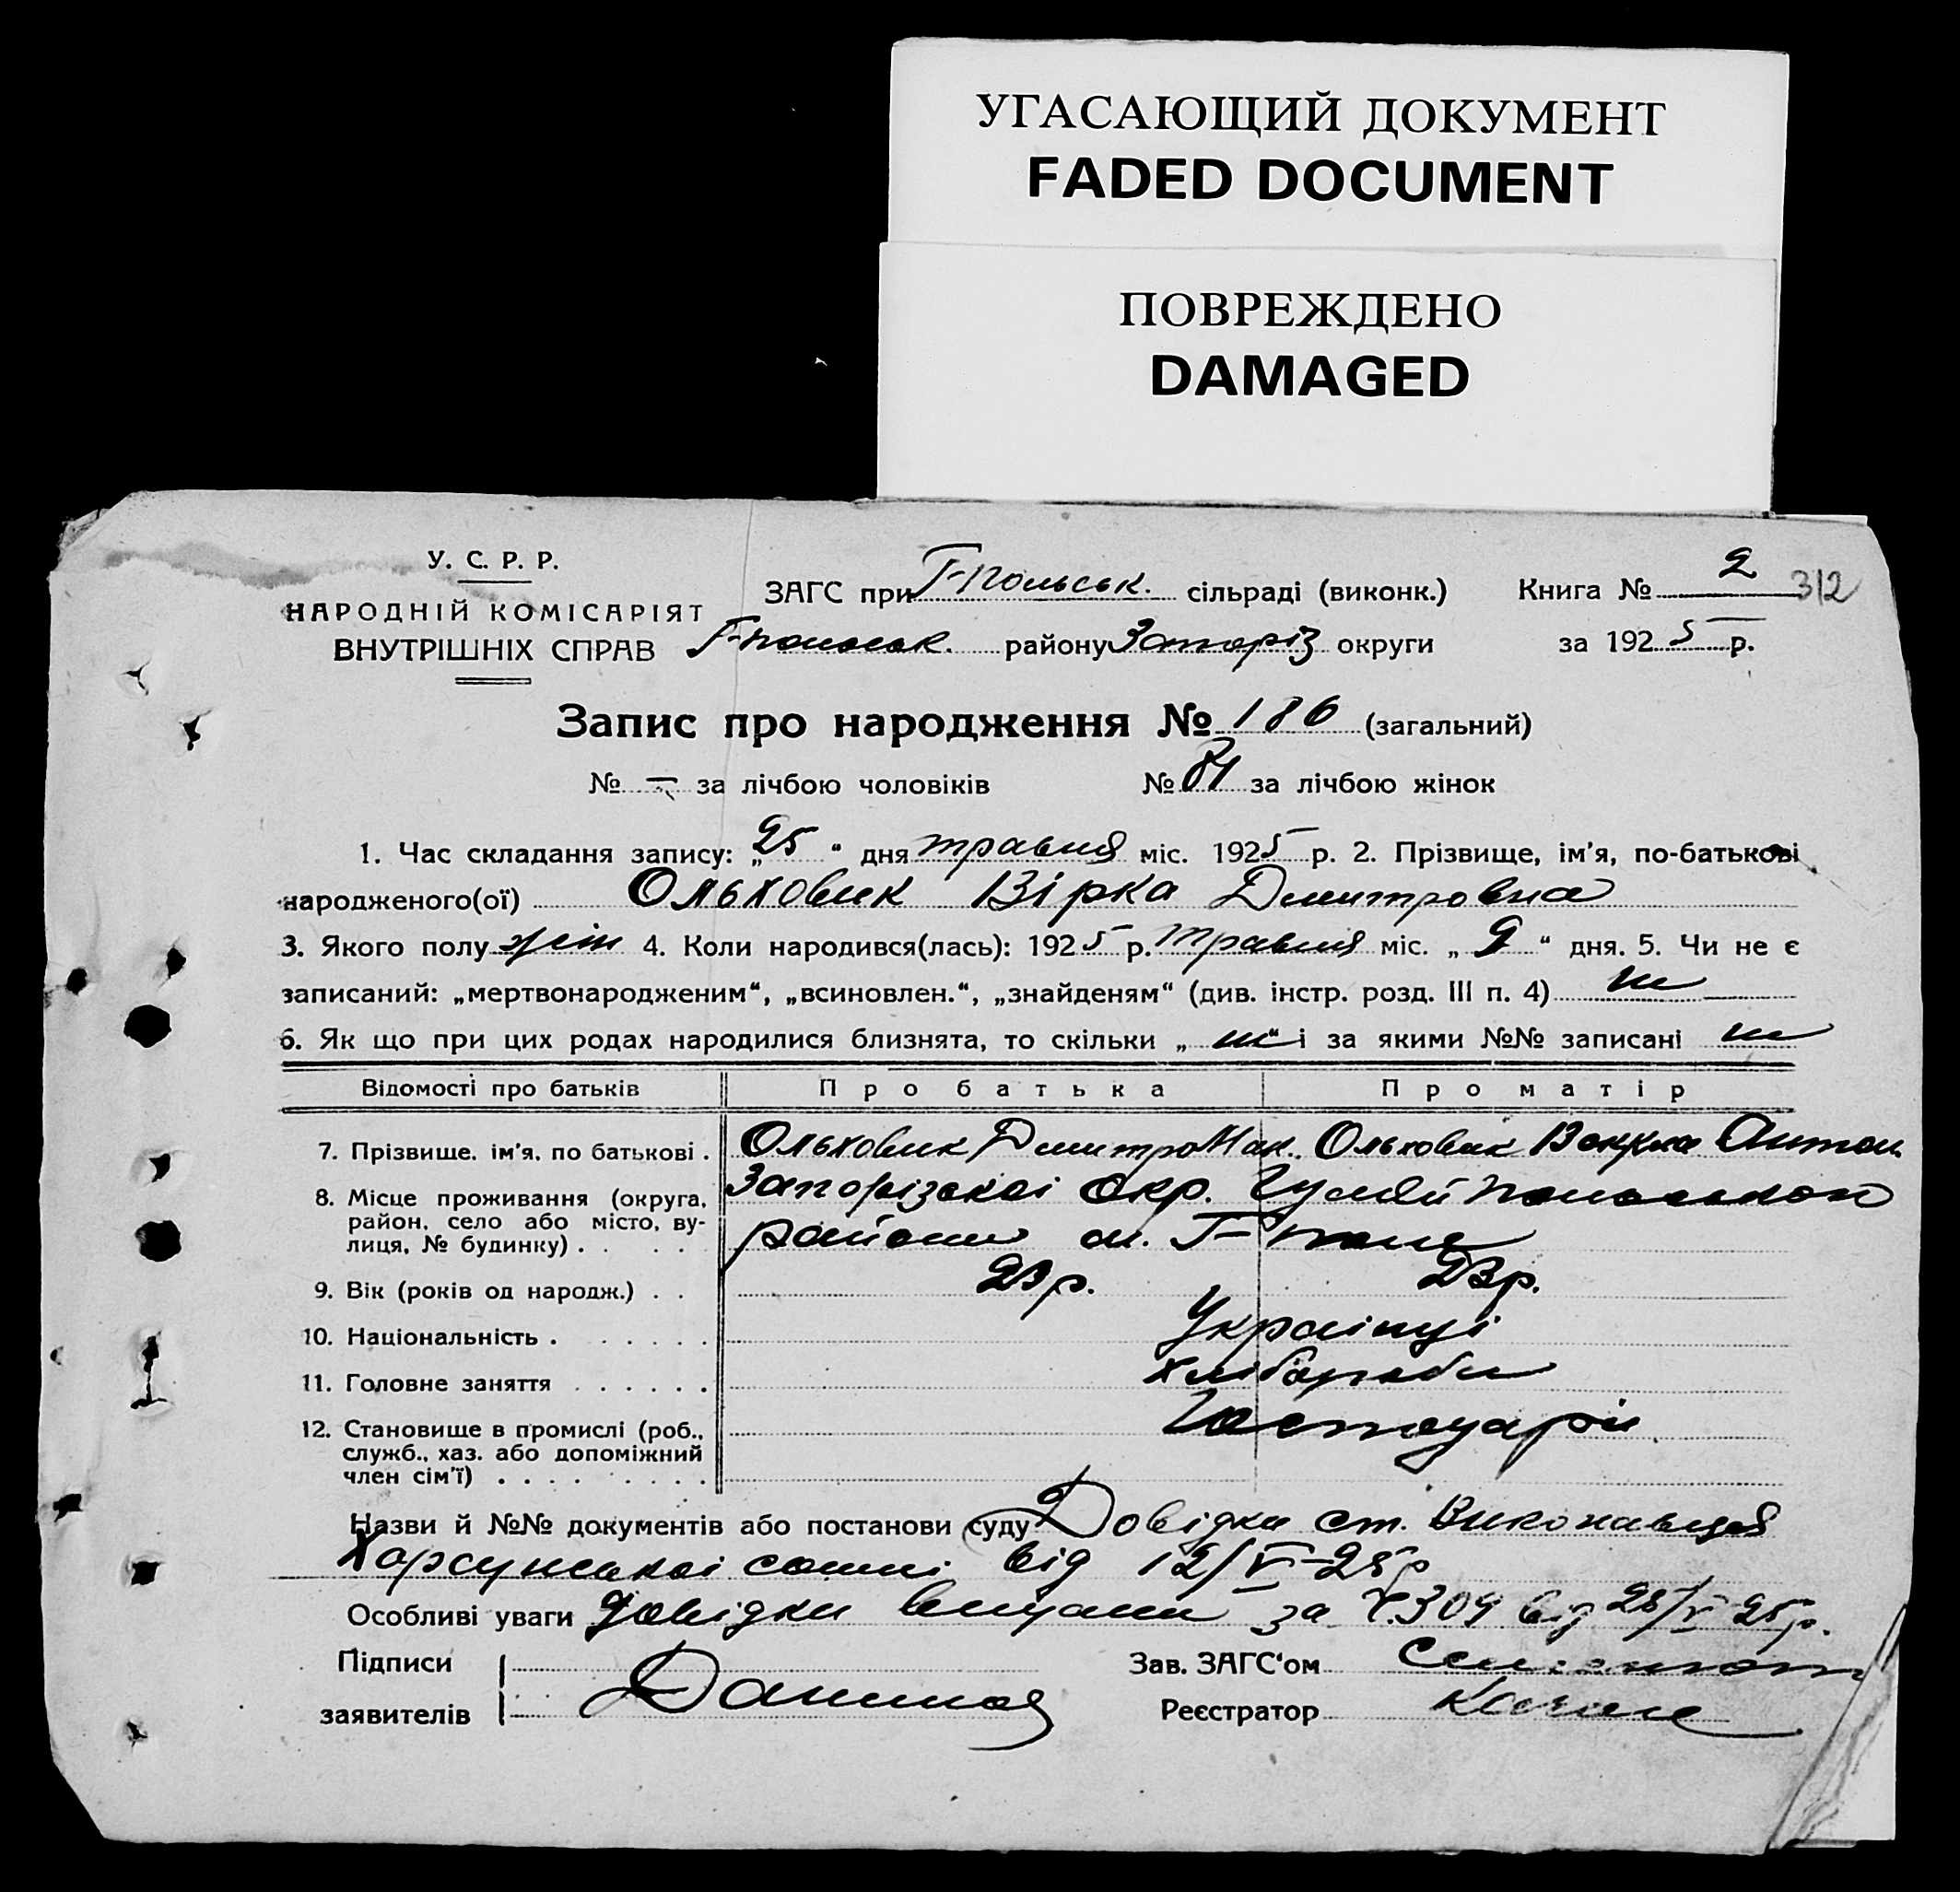 УГАСАЮЩИЙ ДОКУМЕНТ
FADED DOCUMENT
ПОВРЕЖДЕНО
DAMAGED
У. С. Р. Р.
НАРОДНІЙ КОМІСАРІЯТ
ВНУТРІШНІХ СПРАВ
ЗАГС при Г-Польськ. сільраді (виконк.)
Г-польськ. району Запоріз округи
Книга № 2
312
за 1925 р.
Запис про народження № 186 (загальний)
№ – за лічбою чоловіків № 81 за лічбою жінок
1. Час складання запису: „25“ дня травня міс. 1925 р. 2. Прізвище, ім'я, по-батькові
народженого(ої) Ольховик Вірка Дмитровна
3. Якого полу жін 4. Коли народився(лась): 1925 р. травня міс. „9“ дня. 5. Чи не є
записаний: „мертвонародженим“, „всиновлен.“, „знайденям“ (див. інстр. розд. III п. 4) ні
6. Як що при цих родах народилися близнята, то скільки „ні“ і за якими №№ записані ні
Відомості про батьків Про батька Про матір
7. Прізвище, ім'я, по батькові . Ольховик Дмитро Мак. Ольховик Векла Антон.
8. Місце проживання (округа, Запорізькоі окр. Гуляй
район, село або місто, ву- району м. Г-поле
лиця, № будинку) . . . .
9. Вік (років од народж.) . . 23 р. 23 р.
10. Національність . . . . . . Українці
11. Головне заняття . . . . . . хлібороби
12. Становище в промислі (роб., Господарі
служб., хаз. або допоміжний
член сім'ї) . . . . . . . . .
Назви й №№ документів або постанови суду Довідка ст. Виконавця
сотні від 12/V-25 р
Особливі уваги Довідки за Ч. 309 від 25/V 25 р.
Підписи
заявителів
Зав. ЗАГС'ом
Реєстратор